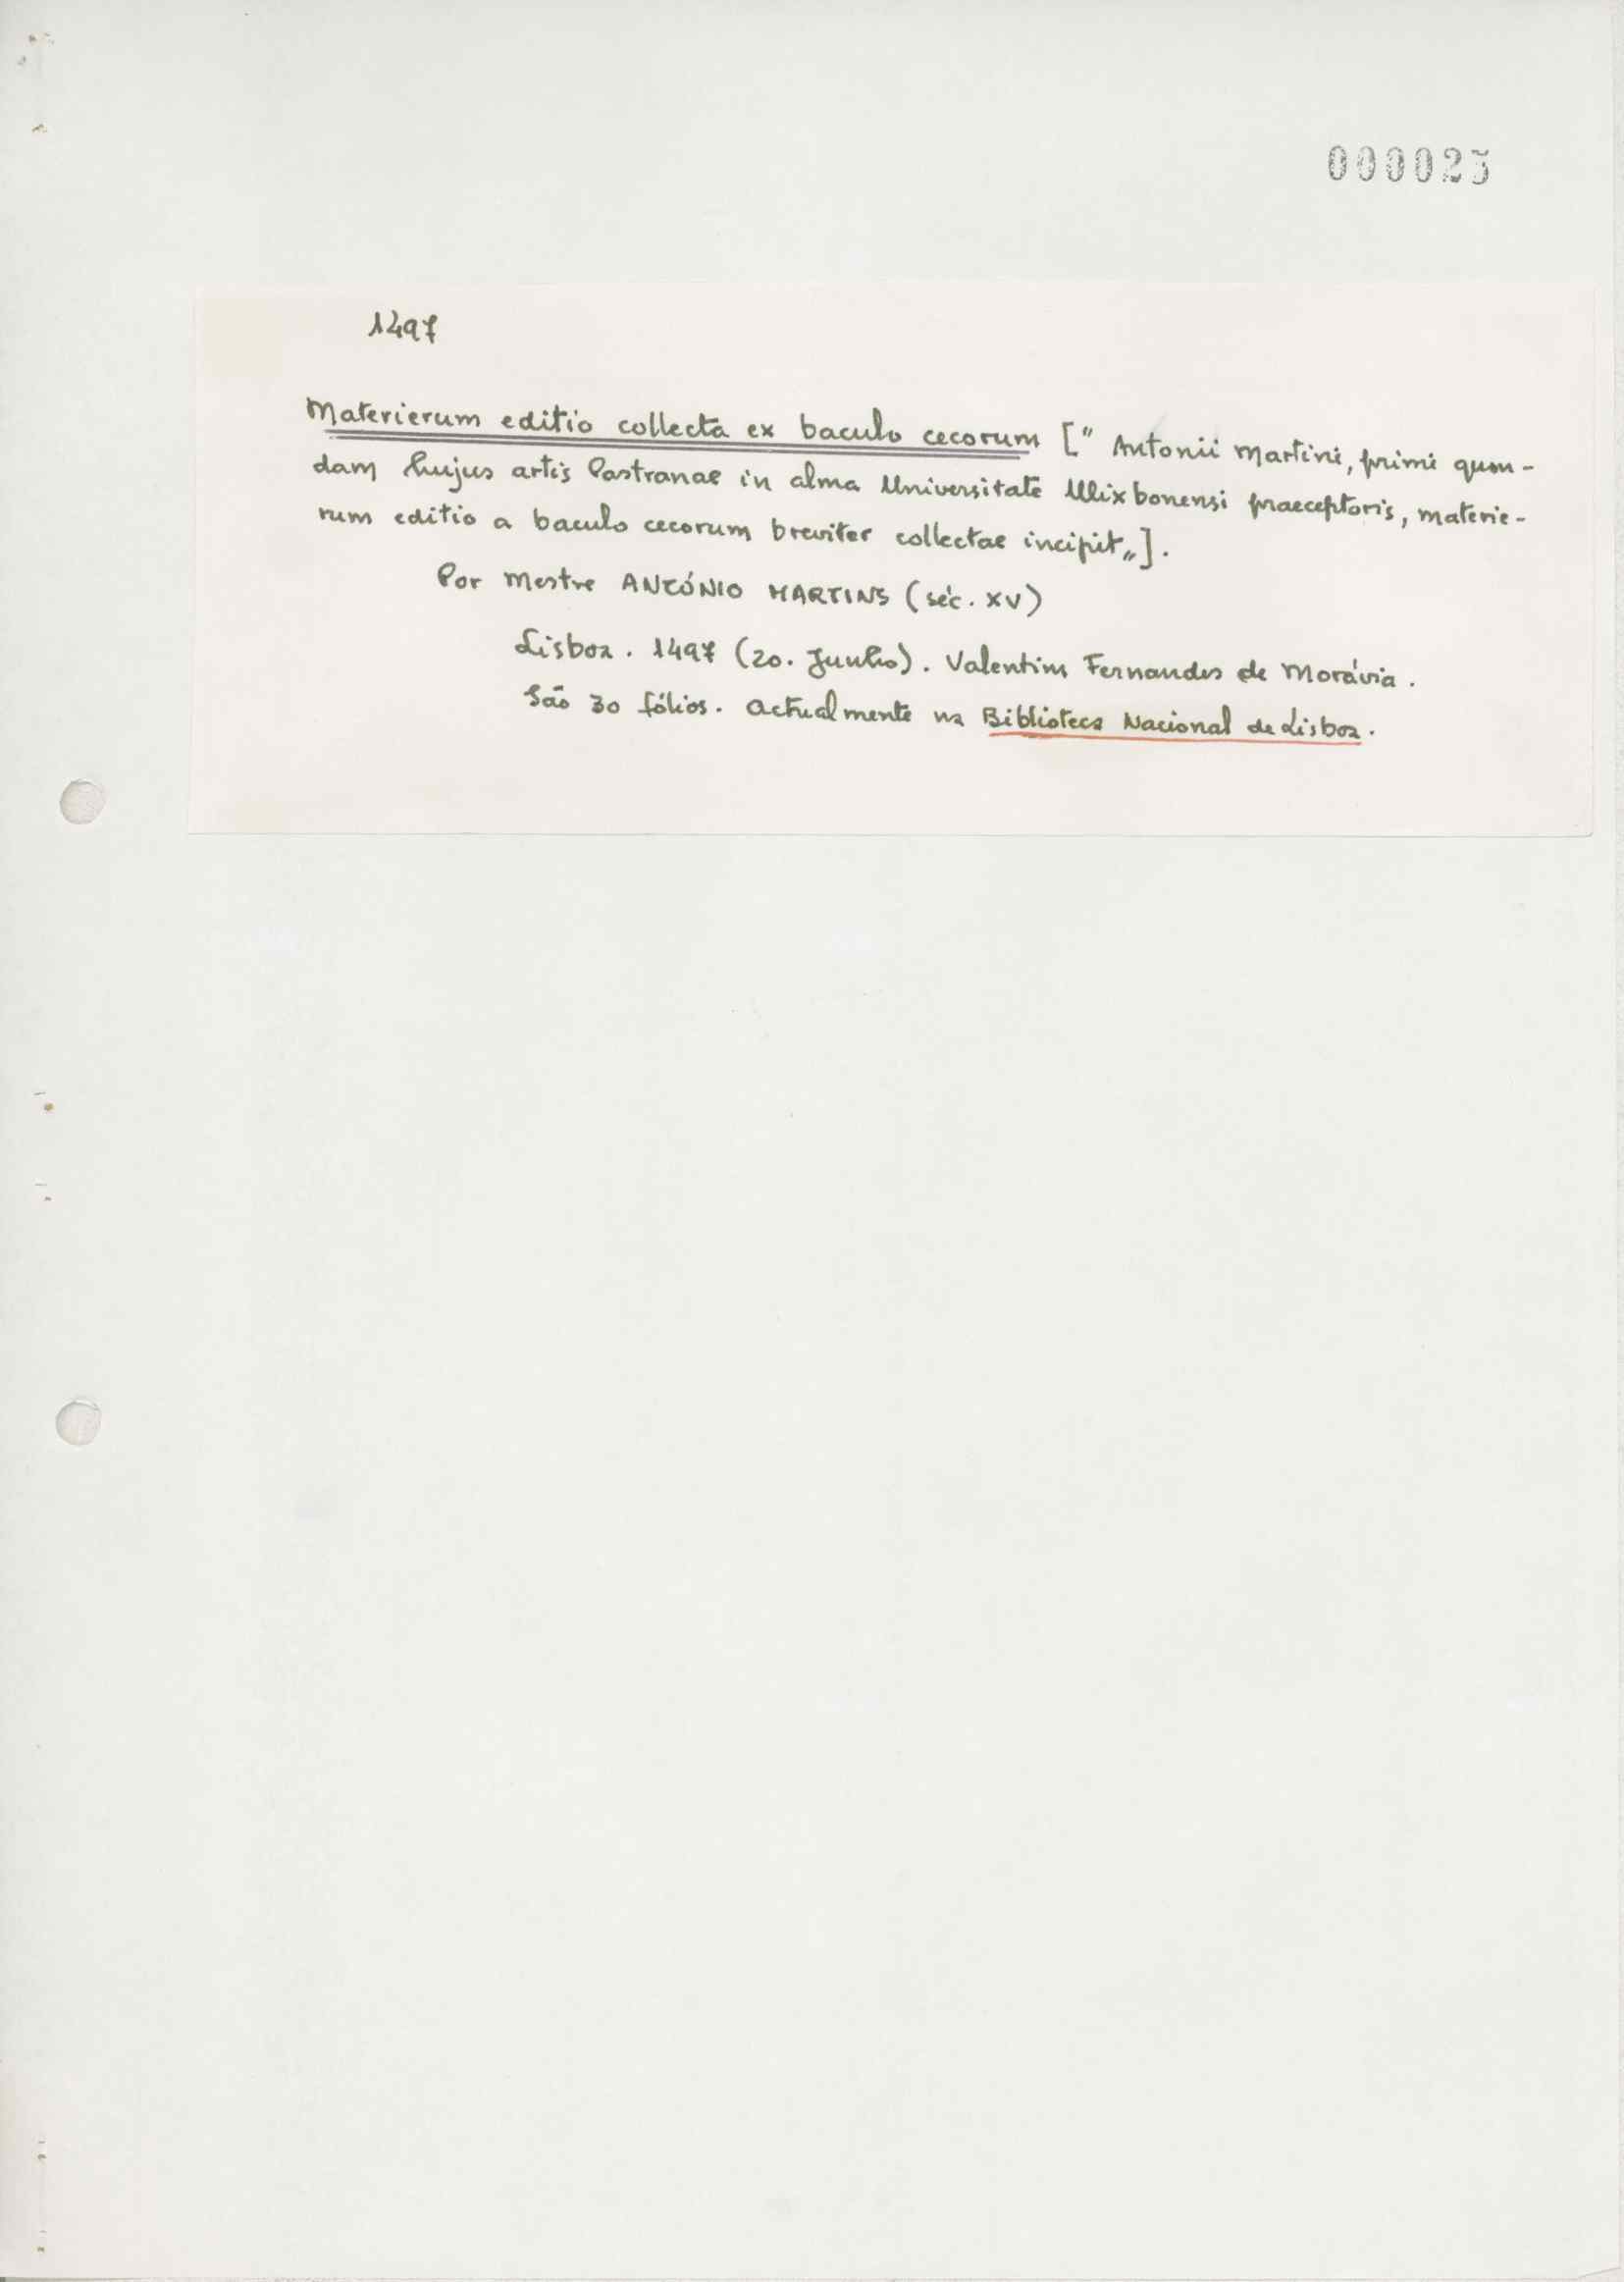 000025
1497
Materierum editio collecta ex baculo cecorum [" Antonii Martini, primi quon-
dam hujus artis Pastranae in alma Universitate Ulixbonensi praeceptoris, materie-
rum editio a baculo cecorum breviter collectae incipit„].
Por Mestre ANTÓNIO MARTINS (séc. XV)
Lisboa. 1497 (20. Junho). Valentim Fernandes de Morávia.
São 30 fólios. Actualmente na Biblioteca Nacional de Lisboa.